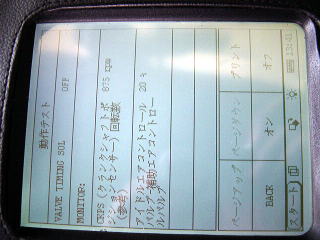 動作テスト
VALVE TIMING SOL OFF
MONITOR:
CKPS (クランクシャフトポ 875 rpm
ジション センサー) 回転数
(参考)
アイドルエアコントロール 20 %
バルブ 補助エアコントロ
ールバルブ
ページアップ ページダウン プリント
BACK オン オフ
スタート 13:41